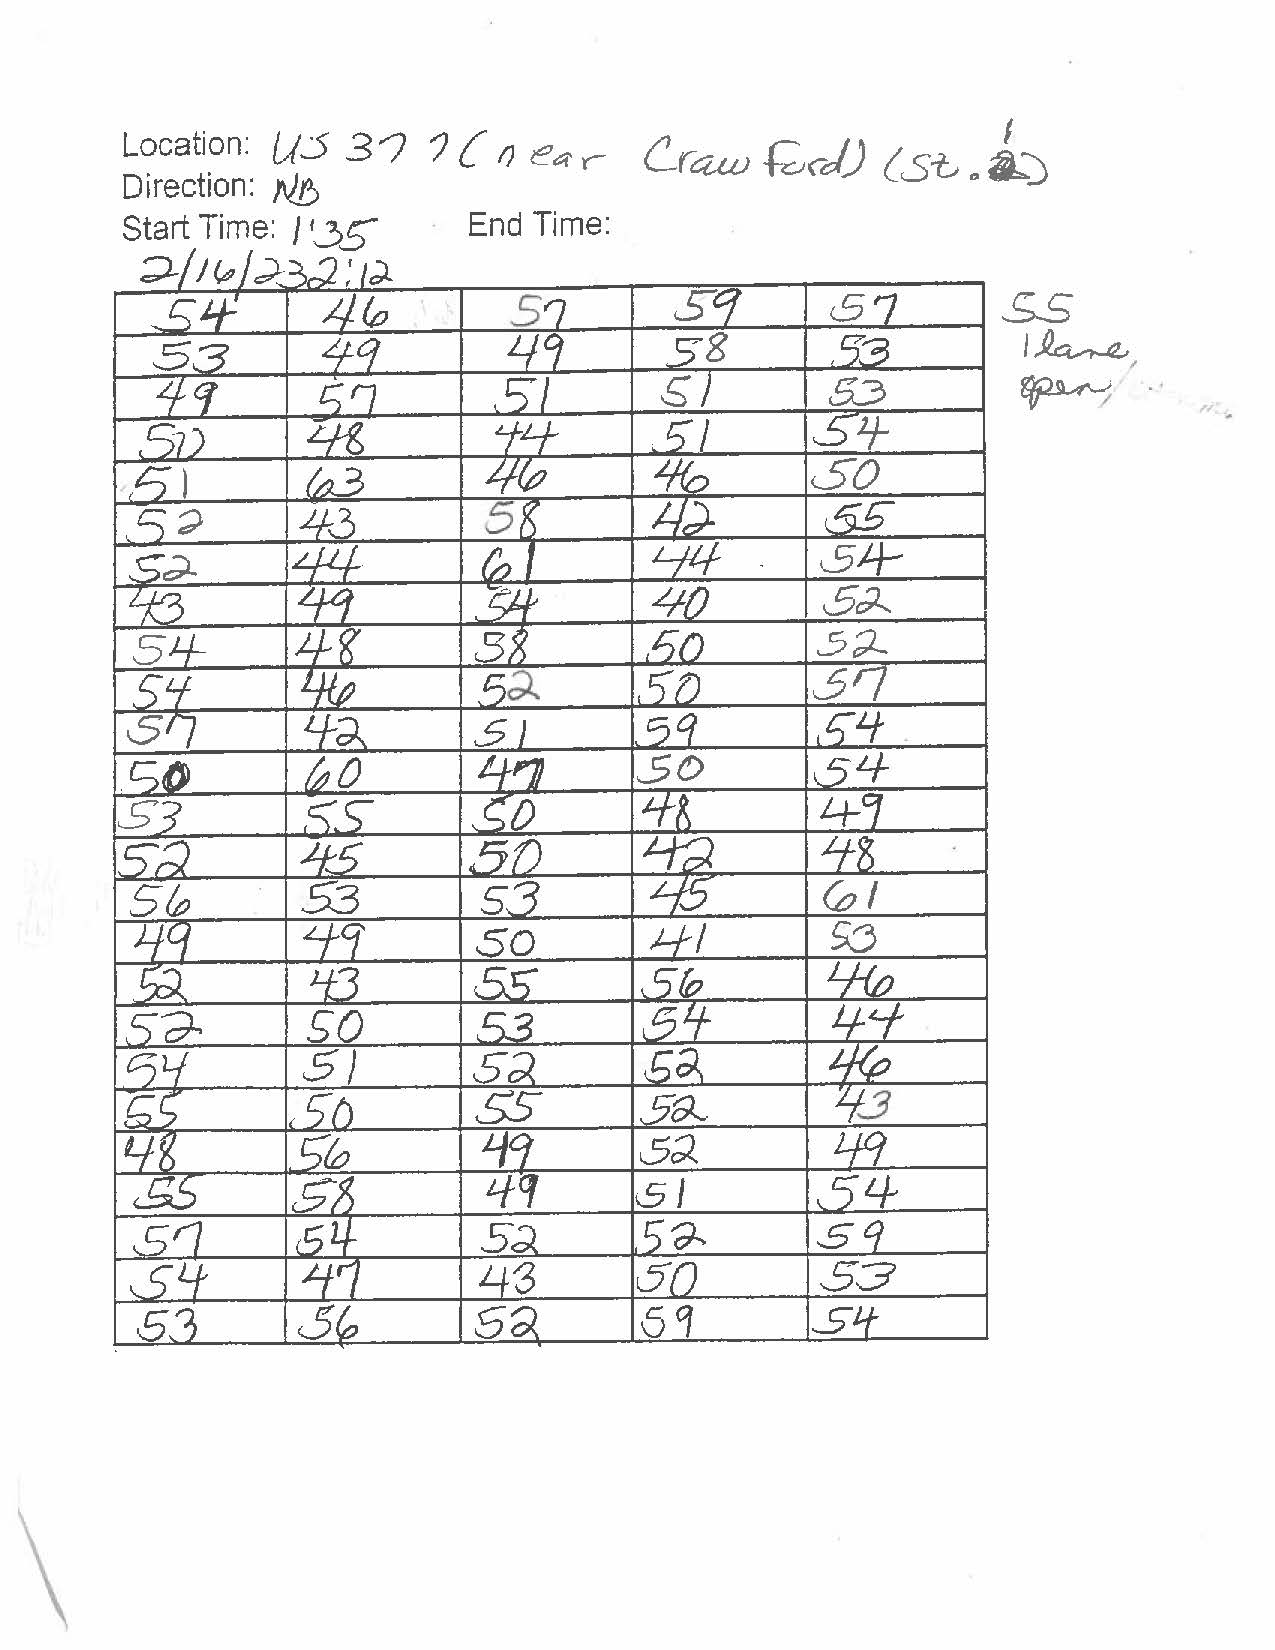 Location: US 377 (near Crawford) (St. 1)
Direction: NB
Start Time: 1:35 End Time:
2/16/23 2:12
54 46 57 59 57 55
53 49 49 58 53 1 lane
49 57 51 51 53 open
50 48 44 51 54
51 63 46 46 50
52 43 58 42 55
52 44 61 44 54
43 49 54 40 52
54 48 58 50 52
54 46 52 50 57
57 42 51 59 54
50 60 47 50 54
53 55 50 48 49
52 45 50 42 48
56 53 53 45 61
49 49 50 41 53
52 43 55 56 46
52 50 53 54 44
54 51 52 52 46
55 50 55 52 43
48 56 49 52 49
55 58 49 51 54
57 54 52 52 59
54 47 43 50 53
53 56 52 59 54